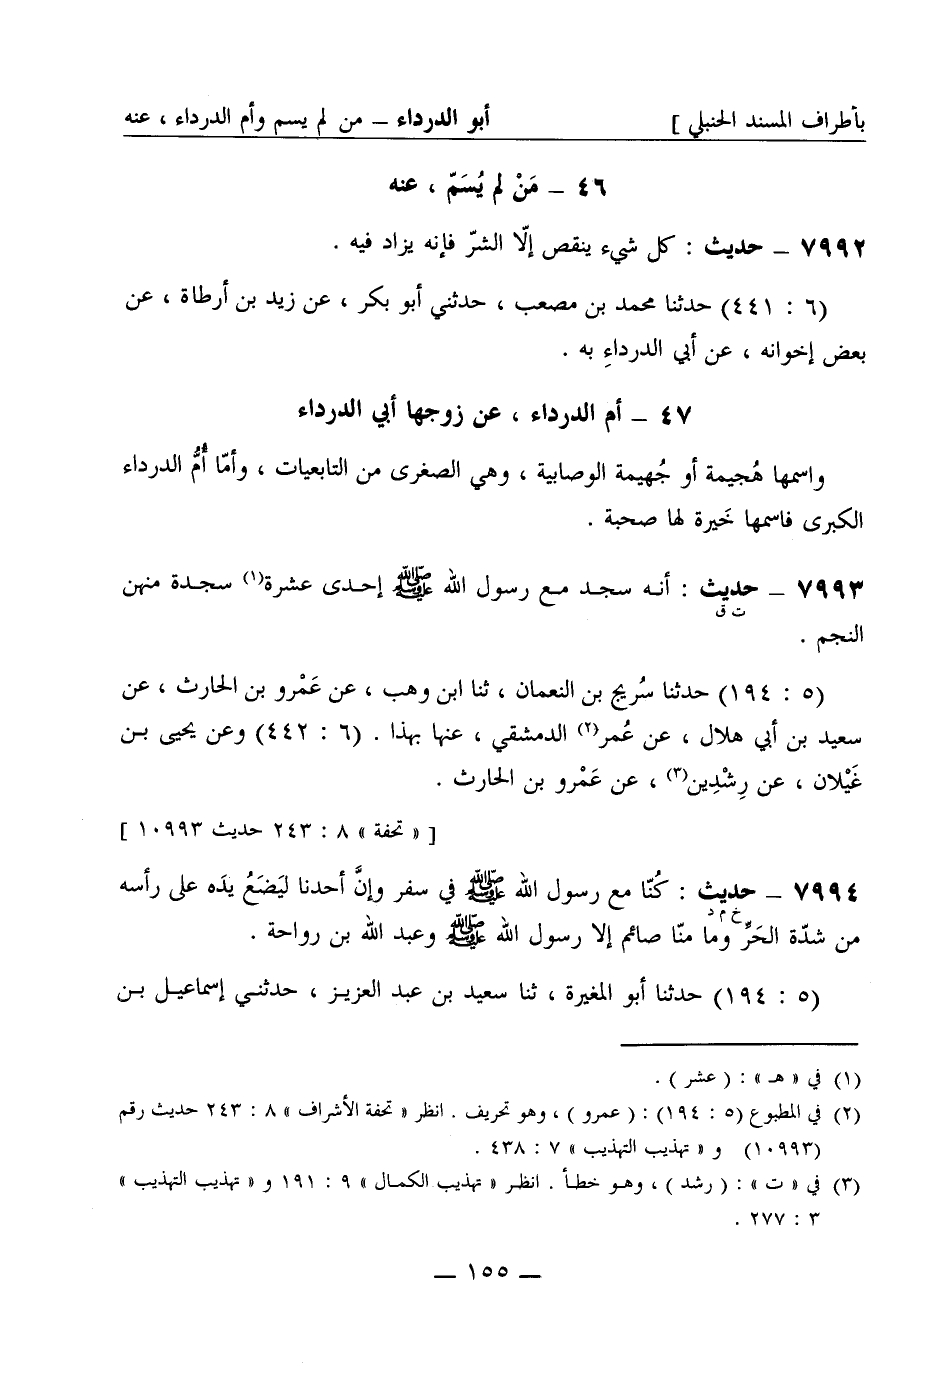 بأطراف المسند الحنبلي ] أبو الدرداء ــ من لم يسم وأم الدرداء ، عنه
٤٦ ــ مَنْ لم يُسَمّ ، عنه
٧٩٩٢ ــ حديث : كل شيء ينقص إلّا الشرّ فإنه يزاد فيه .
(٦ : ٤٤١) حدثنا محمد بن مصعب ، حدثني أبو بكر ، عن زيد بن أرطاة ، عن
بعض إخوانه ، عن أبي الدرداءِ به .
٤٧ ــ أم الدرداء ، عن زوجها أبي الدرداء
واسمها هُجيمة أو جُهيمة الوصابية ، وهي الصغرى من التابعيات ، وأمّا أُمُّ الدرداء
الكبرى فاسمها خَيرة لها صحبة .
٧٩٩٣ ــ حديث : أنه سجد مع رسول الله ﷺ إحدى عشرة(١) سجدة منهن
ت ق
النجم .
(٥ : ١٩٤) حدثنا سُريج بن النعمان ، ثنا ابن وهب ، عن عَمْرو بن الحارث ، عن
سعيد بن أبي هلال ، عن عُمر(٢) الدمشقي ، عنها بهذا . (٦ : ٤٤٢) وعن يحيى بن
غَيْلان ، عن رِشْدِين(٣) ، عن عَمْرو بن الحارث .
[ « تحفة » ٨ : ٢٤٣ حديث ١٠٩٩٣ ]
٧٩٩٤ ــ حديث : كُنّا مع رسول الله ﷺ في سفر وإنَّ أحدنا ليَضَعُ يدَه على رأسه
خ م د
من شدّة الحَرِّ وما منّا صائم إلا رسول الله ﷺ وعبد الله بن رواحة .
(٥ : ١٩٤) حدثنا أبو المغيرة ، ثنا سعيد بن عبد العزيز ، حدثني إسماعيل بن
(١) في « هـ » : ( عشر ) .
(٢) في المطبوع (٥ : ١٩٤) : ( عمرو ) ، وهو تحريف . انظر « تحفة الأشراف » ٨ : ٢٤٣ حديث رقم
(١٠٩٩٣) و « تهذيب التهذيب » ٧ : ٤٣٨ .
(٣) في « ت » : ( رشد ) ، وهو خطأ . انظر « تهذيب الكمال » ٩ : ١٩١ و « تهذيب التهذيب »
٣ : ٢٧٧ .
ــ ١٥٥ ــ